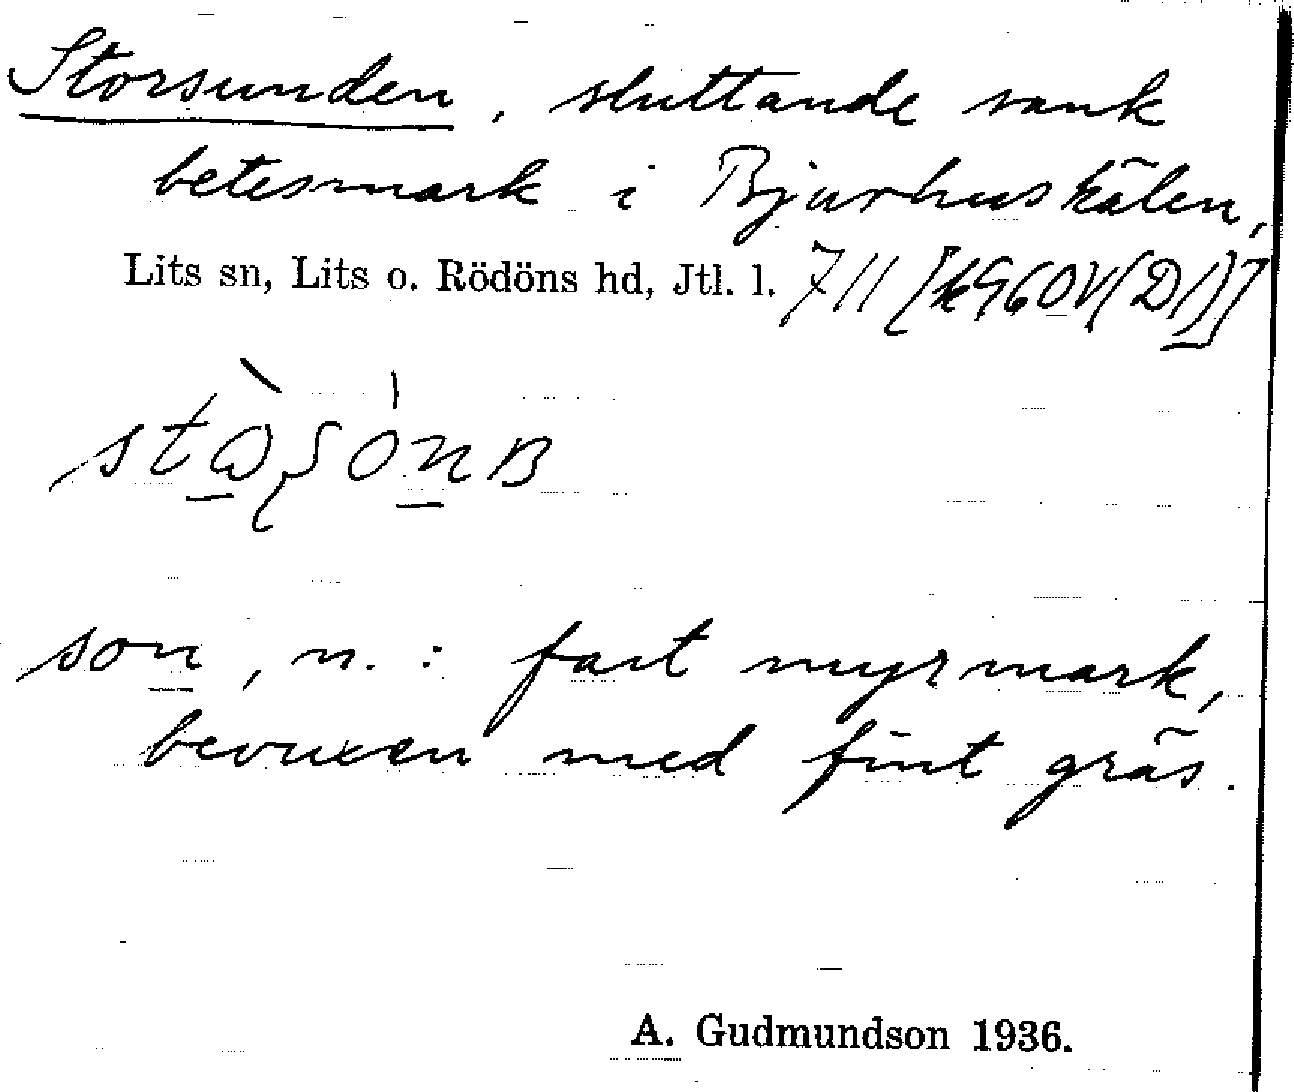 Storsunden, sluttande sank
betesmark i Bjurhuskälen,
Lits sn, Lits o. Rödöns hd, Jtl. l. 711
son, n. : fast myrmark,
bevuxen med fint gräs.
A. Gudmundson 1936.